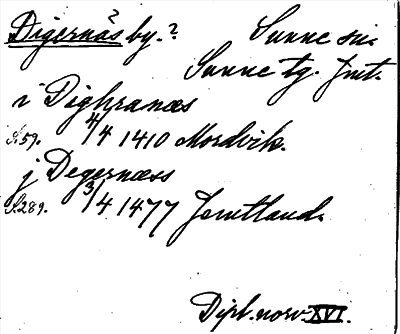 Digernäs by.? Sunne sn.
Sunne tg. Jmt.
i Dighranæs
S. 59. 4/4 1410 Mordvik.
j Degernæss
S. 289. 3/4 1477 Jemtland.
Dipl. norv. XVI.